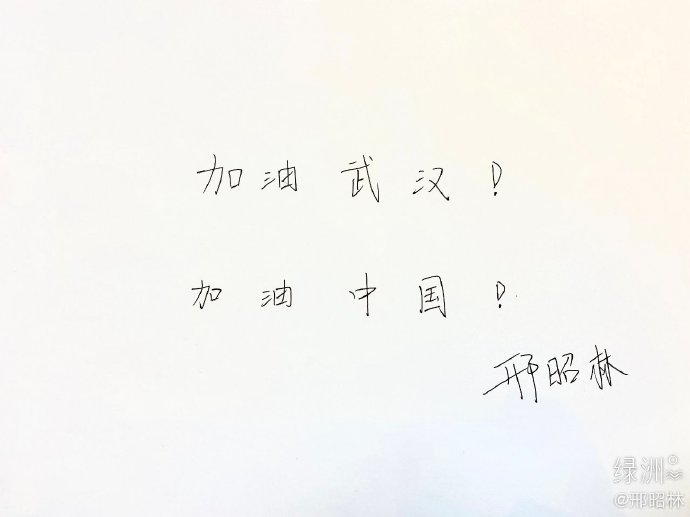 加油武汉！
加油中国！
邢昭林
绿洲
@邢昭林